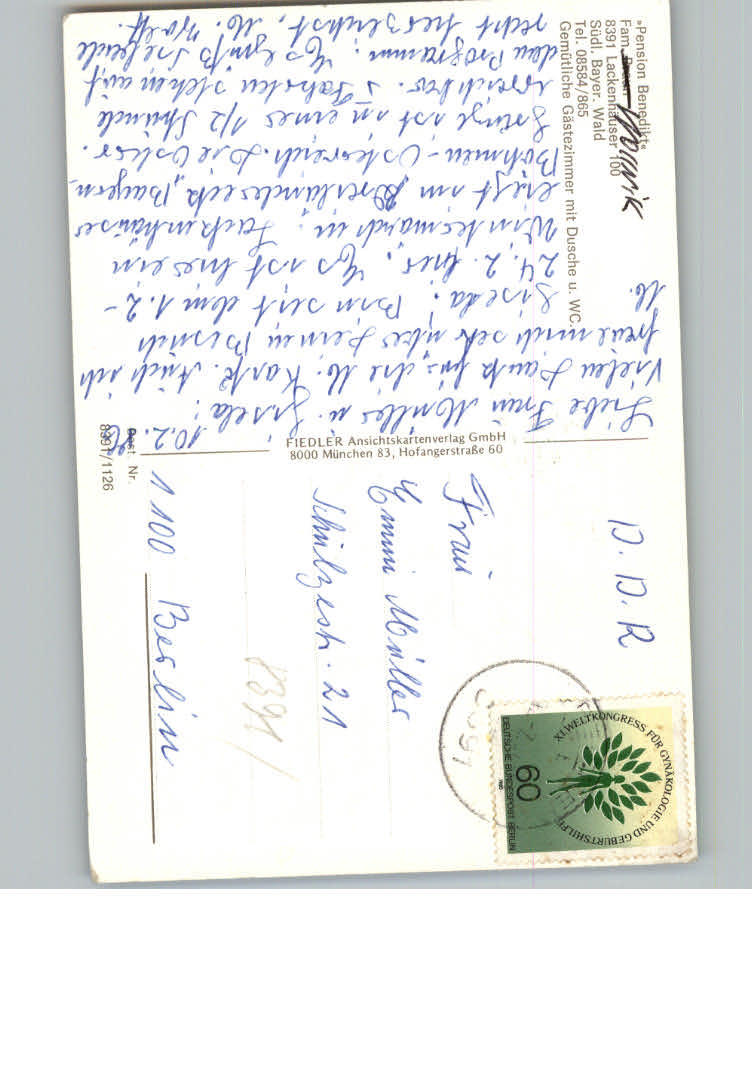 »Pension Benedikt«
Fam.
8391 Lackenhäuser 100
Südl. Bayer. Wald
Tel. 08584/865
Gemütliche Gästezimmer mit Dusche u. WC
10.2.
Liebe Frau Müller u. Gisela!
Vielen Dank für die Karte. Auch ich
freue mich sehr über Deinen Besuch
Gisela! Bin seit dem 1.2.-
24.2. hier. Es ist hier ein
Wintermärchen! Lackenhäuser
liegt im Dreiländereck, Bayern,
Böhmen-Österreich. Die
Grenze ist in einer 1/2 Stunde
erreichbar. 3 Fahrten stehen auf
dem Programm. Es grüßt Sie beide
recht herzlich
Best. Nr.
8391/1126
FIEDLER Ansichtskartenverlag GmbH
8000 München 83, Hofangerstraße 60
D. D. R
Frau
Emmi Müller
Schulzestr. 21
1100 Berlin
8391/
XI. WELTKONGRESS FÜR GYNÄKOLOGIE UND GEBURTSHILFE
60
1985
DEUTSCHE BUNDESPOST BERLIN